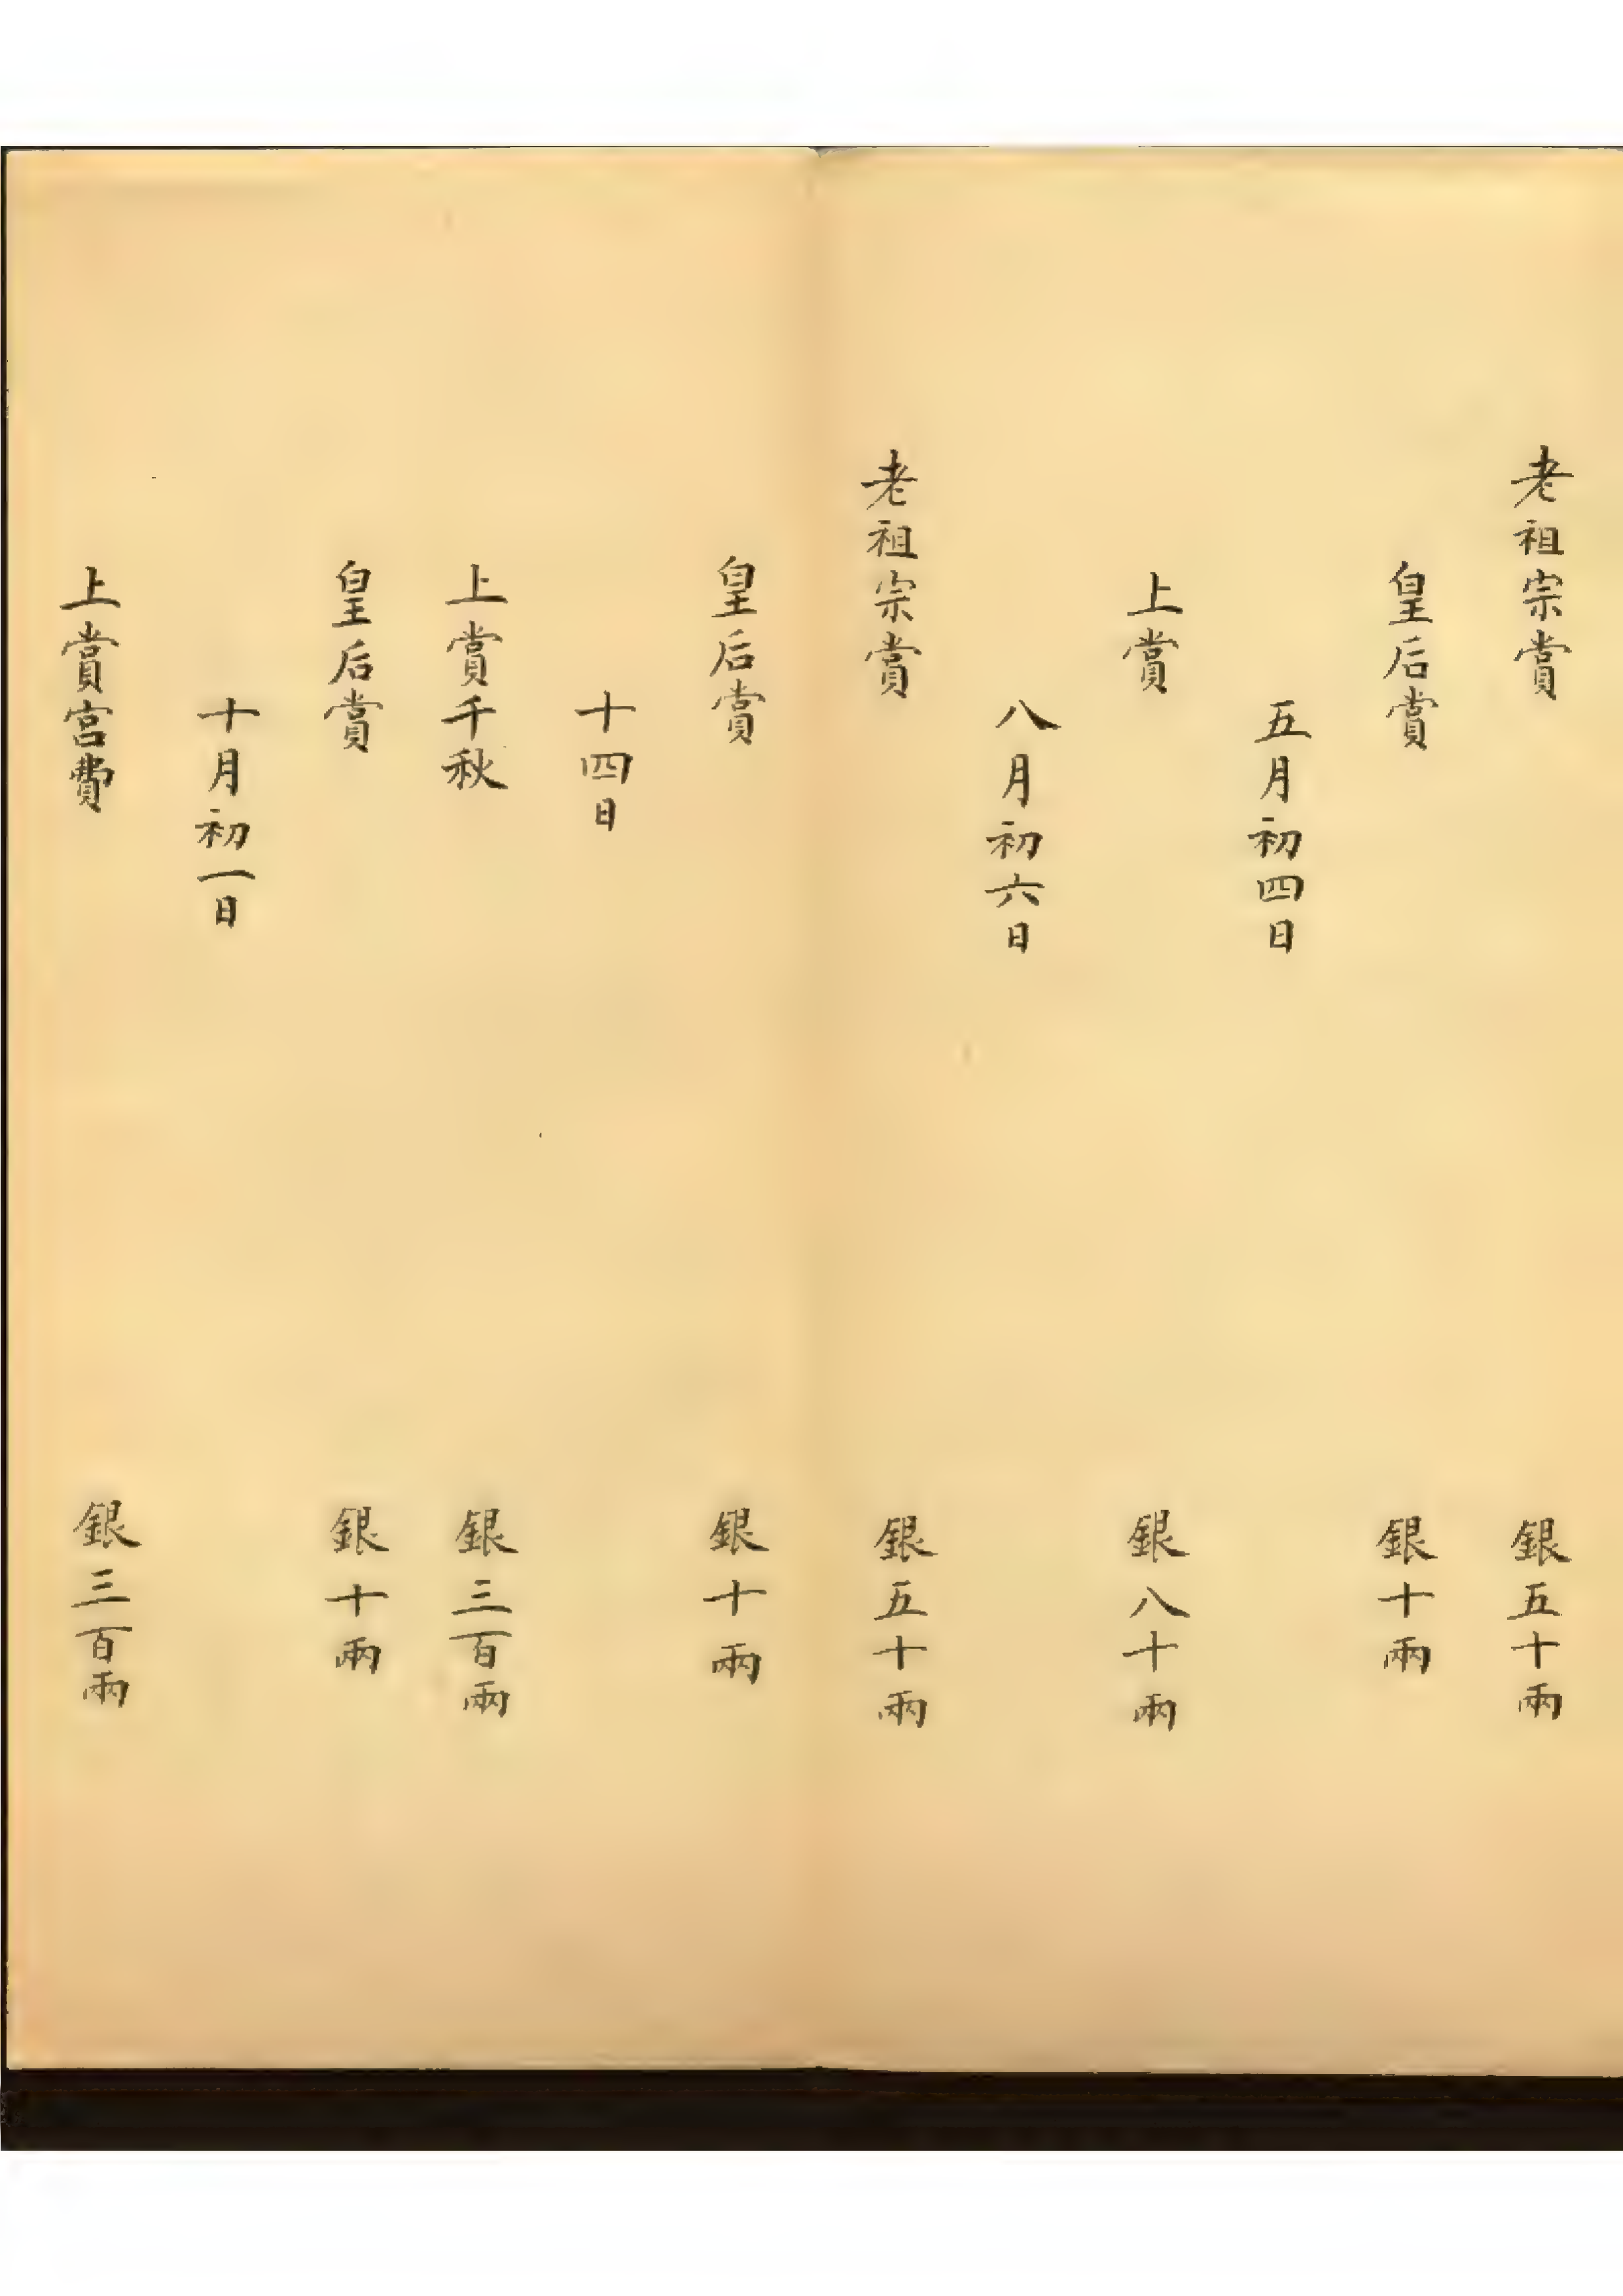 老祖宗賞 銀五十兩
皇后賞 銀十兩
五月初四日
上賞 銀八十兩
八月初六日
老祖宗賞 銀五十兩
皇后賞 銀十兩
十四日
上賞千秋 銀三百兩
皇后賞 銀十兩
十月初一日
上賞宮費 銀三百兩